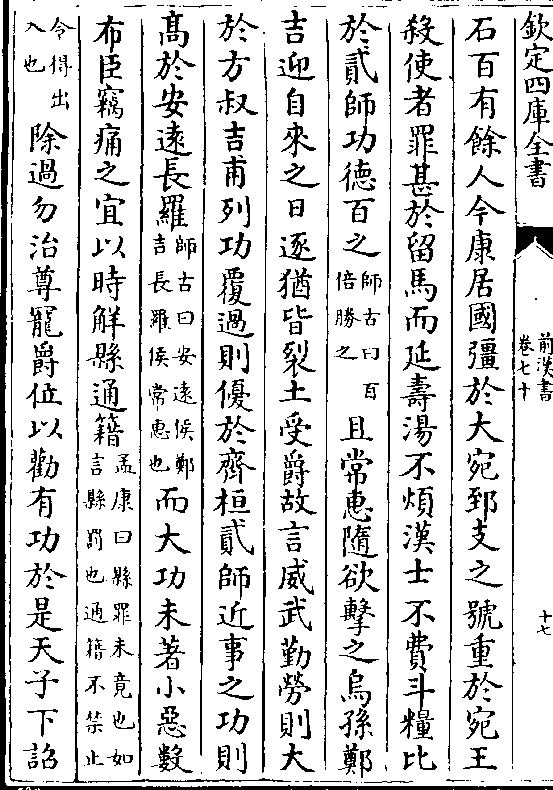 欽定四庫全書
前漢書
卷七十
十七
石百有餘人今康居國彊於大宛郅支之號重於宛王
殺使者罪甚於留馬而延壽湯不煩漢士不費斗糧比
於貳師功德百之師古曰百倍勝之且常惠隨欲擊之烏孫鄭
吉迎自來之日逐猶皆裂土受爵故言威武勤勞則大
於方叔吉甫列功覆過則優於齊桓貳師近事之功則
髙於安逺長羅師古曰安逺侯鄭吉長羅侯常惠也而大功未著小惡數
布臣竊痛之宜以時解縣通籍孟康曰縣罪未竟也如言縣罰也通籍不禁止
令得出入也除過勿治尊寵爵位以勸有功於是天子下詔